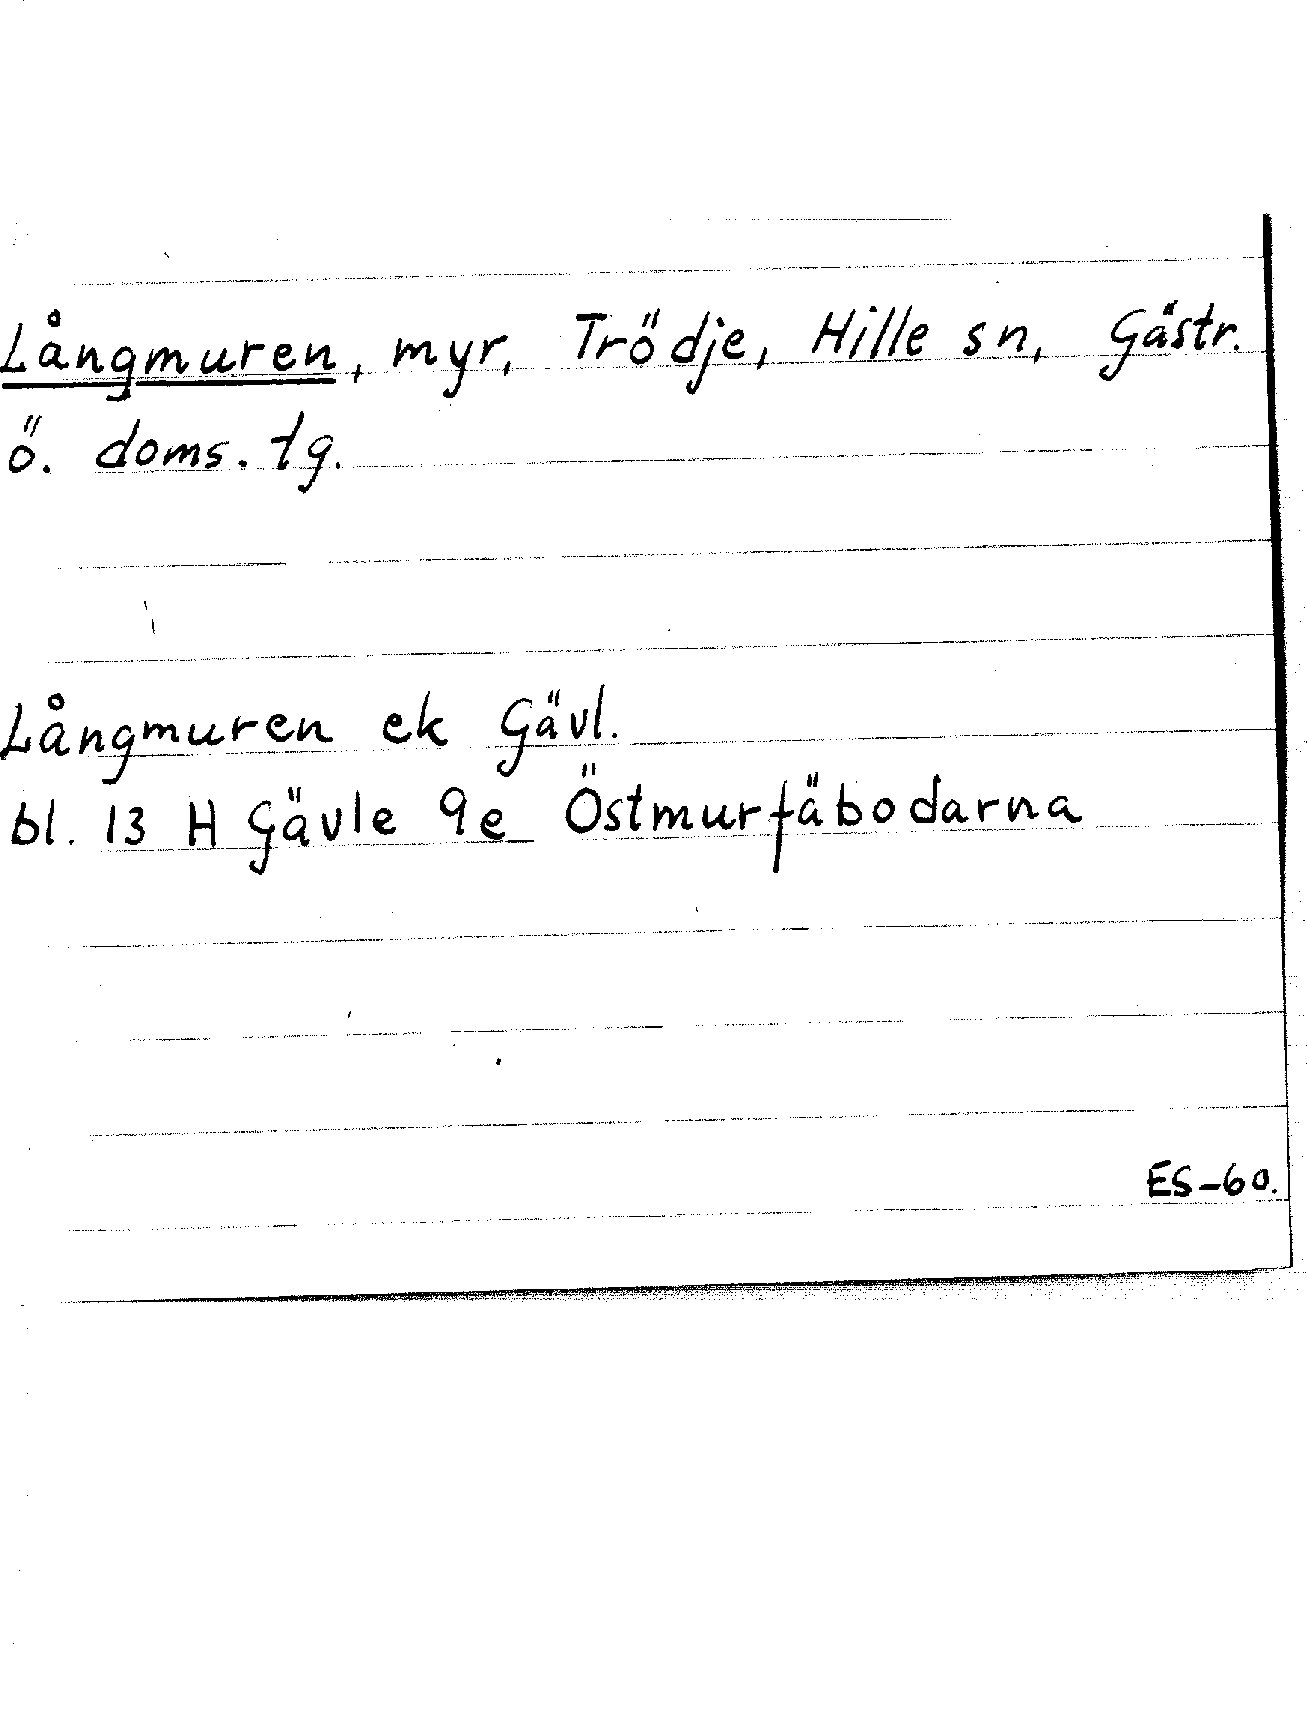 Långmuren, myr, Trödje, Hille sn, Gästr.
ö. doms. tg.
Långmuren ek Gävl.
bl. 13 H Gävle 9e Östmurfäbodarna
ES-60.